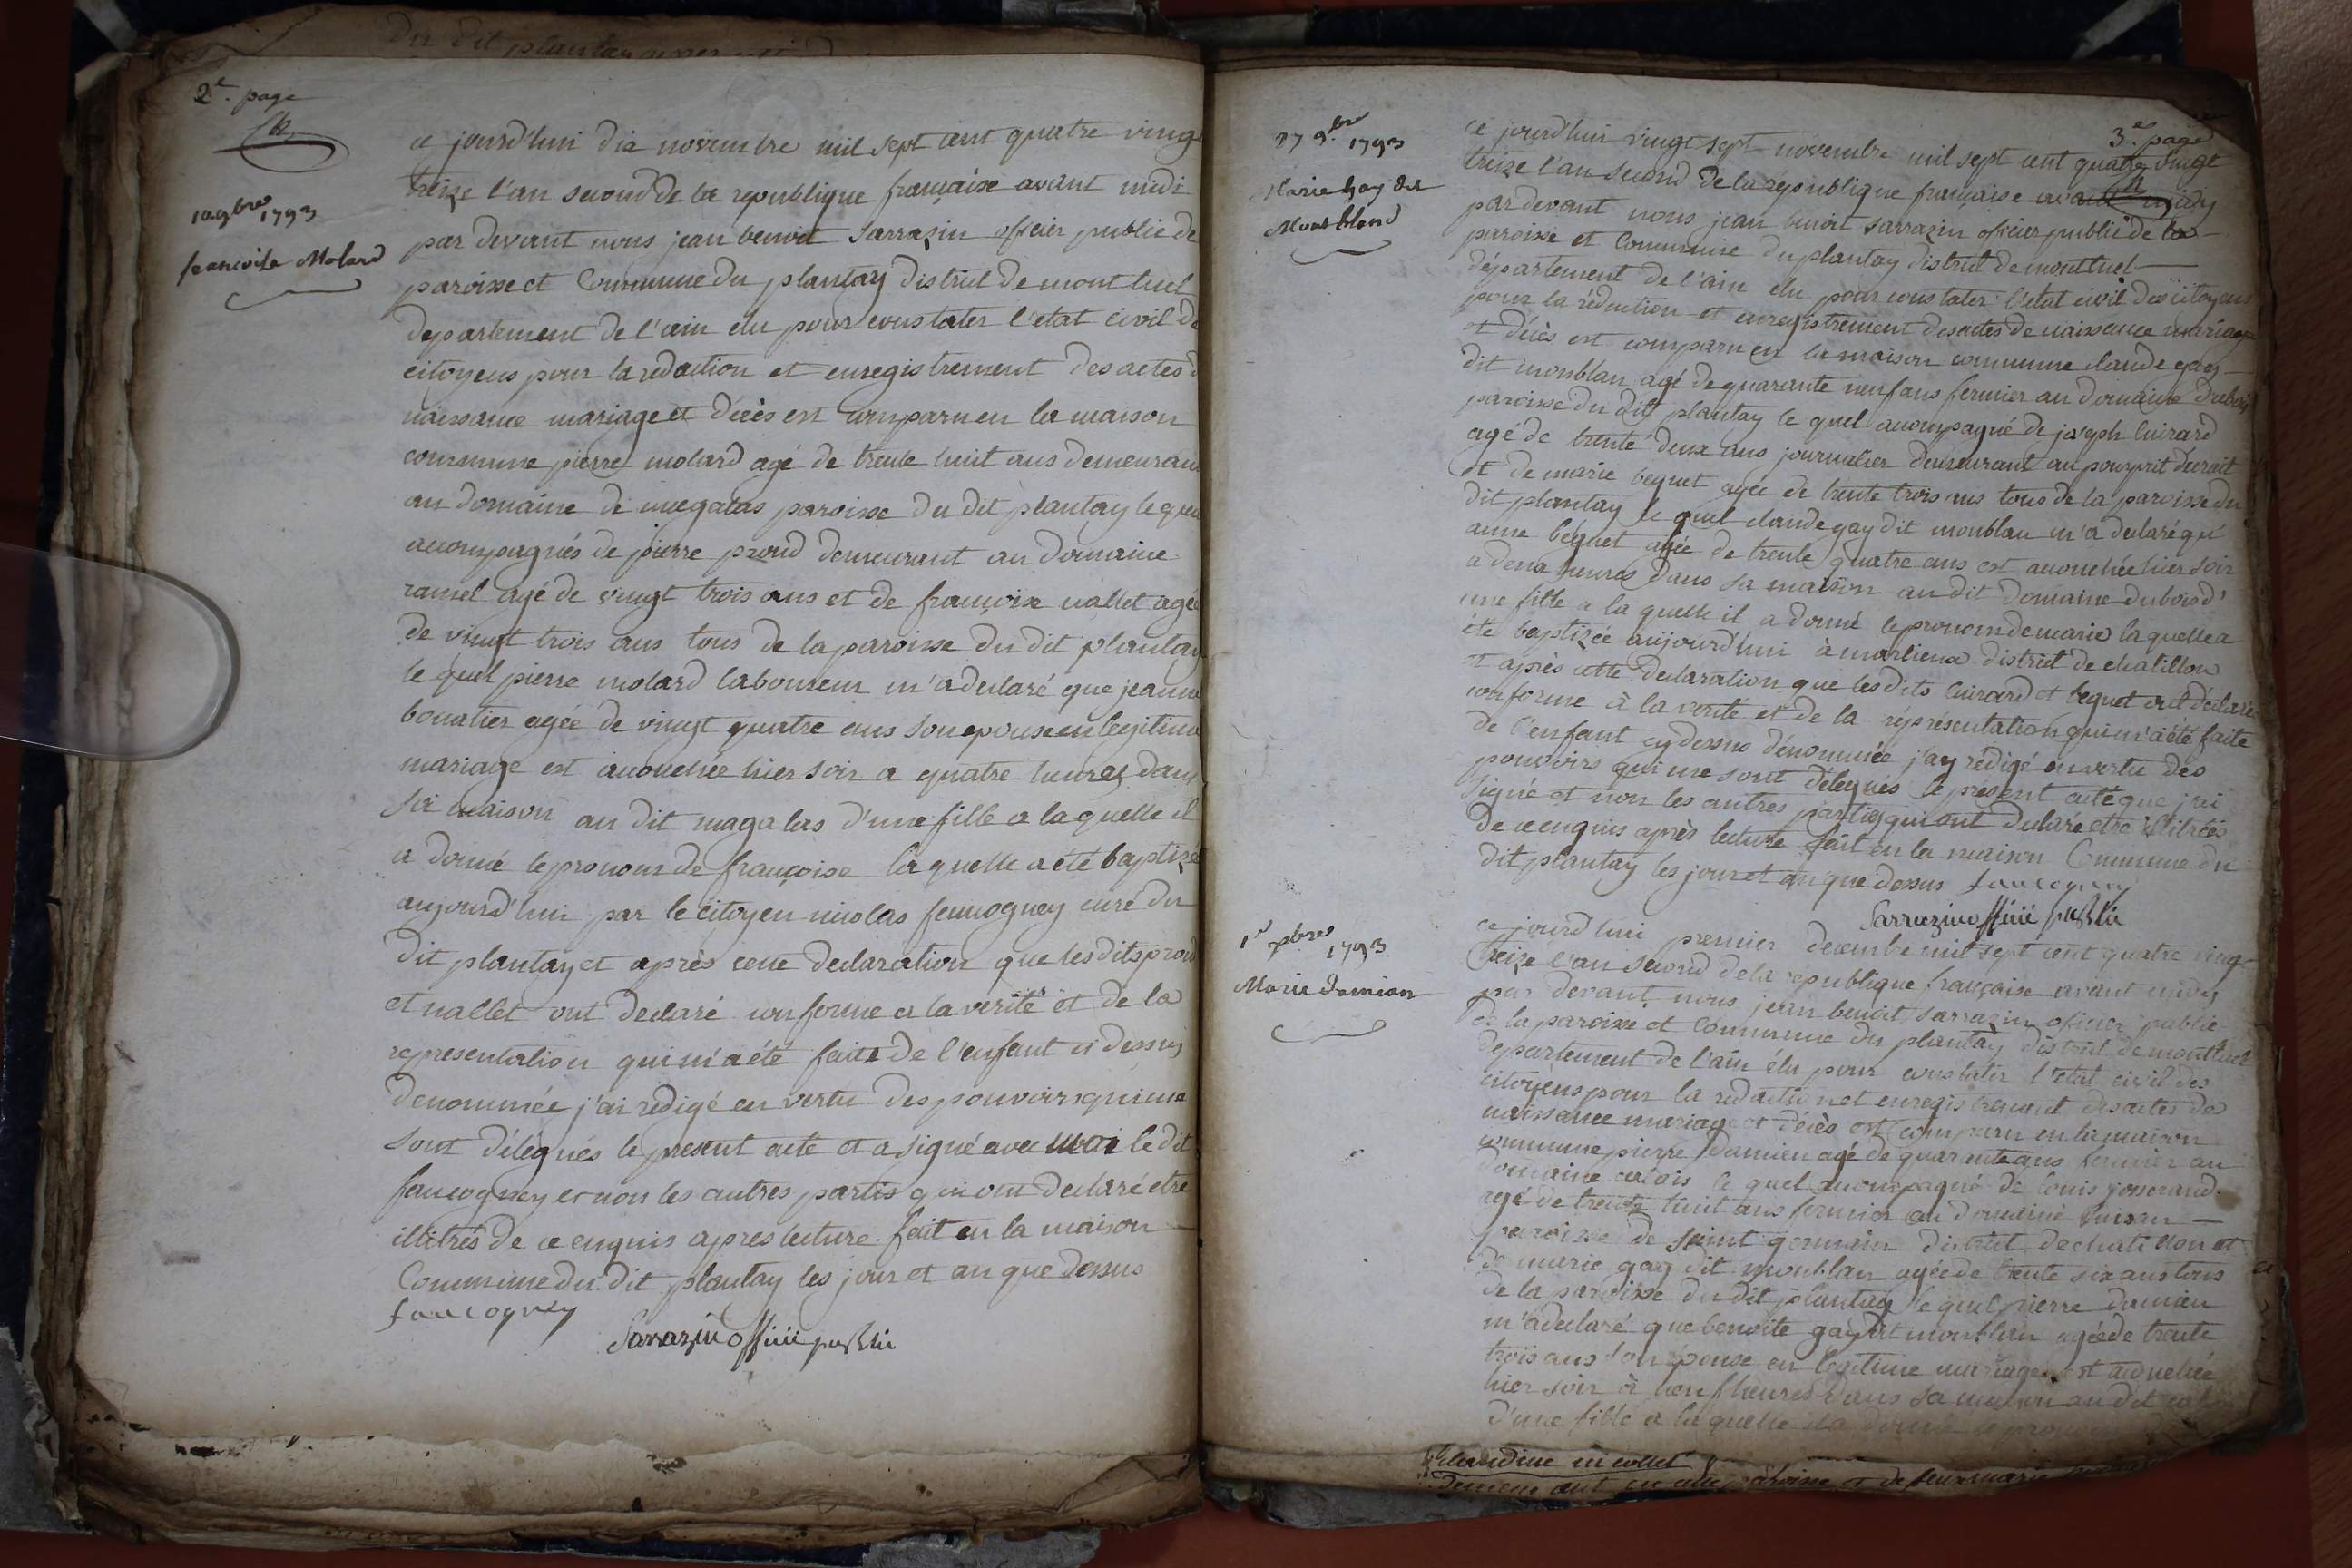 du dit plantay
2e. page
10 9bre 1793
francoise Molard
ce jourd'hui dix novembre mil sept cent quatre vingt
treize l'an second de la republique française avant midi
par devant nous jean benoit Sarrazin officier public de
paroisse et Commune du plantay district de mont luel
departement de l'ain elu pour constater l'etat civil de
citoyens pour la redaction et enregistrement des actes d
naissance mariage et décès est comparu en la maison
commune pierre molard agé de trente huit ans demeurant
au domaine de megalas paroisse du dit plantay le quel
accompagnés de pierre proud demeurant au domaine
ramel agé de vingt trois ans et de françoise nallet agée
de vingt trois ans tous de la paroisse du dit plantay
le quel pierre molard laboureur m'a declaré que jeanne
bouatier agée de vingt quatre ans son epouse en legitime
mariage est accouchée hier soir a quatre heures dans
sa maison au dit magalas d'une fille a la quelle il
a donné le pronom de françoise la quelle a été baptizé
aujourd'hui par le citoyen nicolas faucogney curé du
dit plantay et après cette declaration que les dits proud
et nallet ont declaré conforme a la verité et de la
representation qui m'a été faite de l'enfant ci dessus
denommée j'ai redigé en vertu des pouvoirs qui me
sont délegués le present acte et a signé avec moi le dit
faucogney et non les autres partis qui ont declaré etre
illitrés de ce enquis apres lecture fait en la maison
Commune du dit plantay les jour et an que dessus
faucogney
Sarrazin officii public
3e. page
27 9.bre 1793
Marie Gay dit
Montbland
ce jourd'hui vingt sept novembre mil sept cent quatre vingt
treize l'an second de la république française avant midy
par devant nous jean benoit sarrazin oficier public de la
paroisse et Commune du plantay district de montluel
département de l'ain elu pour constater l'état civil des citoyens
pour la rédaction et enregistrement des actes de naissance mariage
et décès est comparu en la maison commune claude gay
dit monblan agé de quarante neuf ans fermier au domaine dubois
paroisse du dit plantay le quel accompagné de joseph
agé de trente deux ans journalier demeurant au
et de marie bequet agée de trente trois ans tous de la paroisse du
dit plantay le quel claude gay dit monblan m'a declaré qu'
anne béquet agée de trente quatre ans est accouchée hier soir
a deux heures dans sa maison au dit domaine dubois d'
une fille a la quelle il a donné le pronom de marie la quelle a
été baptizée aujourd'hui à marlieux district de chatillon
et après cette declaration que les dits et bequet ont déclaré
conforme à la verité et de la réprésentation qui m'a été faite
de l'enfant cy dessus dénommée j'ay rédigé en vertu des
pouvoirs qui me sont délegués le présent acte que j'ai
signé et non les autres parties qui ont declaré etre illitrées
de ce enquis après lecture fait en la maison Commune du
dit plantay les jour et an que dessus faucogney
Sarrazin officii public
1er xbre 1793
Marie Damian
ce jourd'hui premier decembre mil sept cent quatre vingt
treize l'an second de la republique française avant midy
par devant nous jean benoit sarrazin oficier public
de la paroisse et Commune du plantay district de montluel
departement de l'ain élu pour constater l'état civil des
citoyens pour la redaction et enregistrement des actes de
naissance mariage et décès est comparu en la maison
commune pierre damien agé de quarente ans fermier au
domaine le quel accompagné de louis josserand
agé de trente huit ans fermier au domaine
paroisse de saint germain district de chatillon et
de marie gay dit monblan agée de trente six ans tous
de la paroisse du dit plantay le quel pierre damian
m'a declaré que benoite gay dit monblan agée de trente
trois ans son épouse en legitime mariage est accouchée
hier soir à neuf heures dans sa maison au dit
d'une fille a la quelle il a donné le pronom
Claudine nicollet